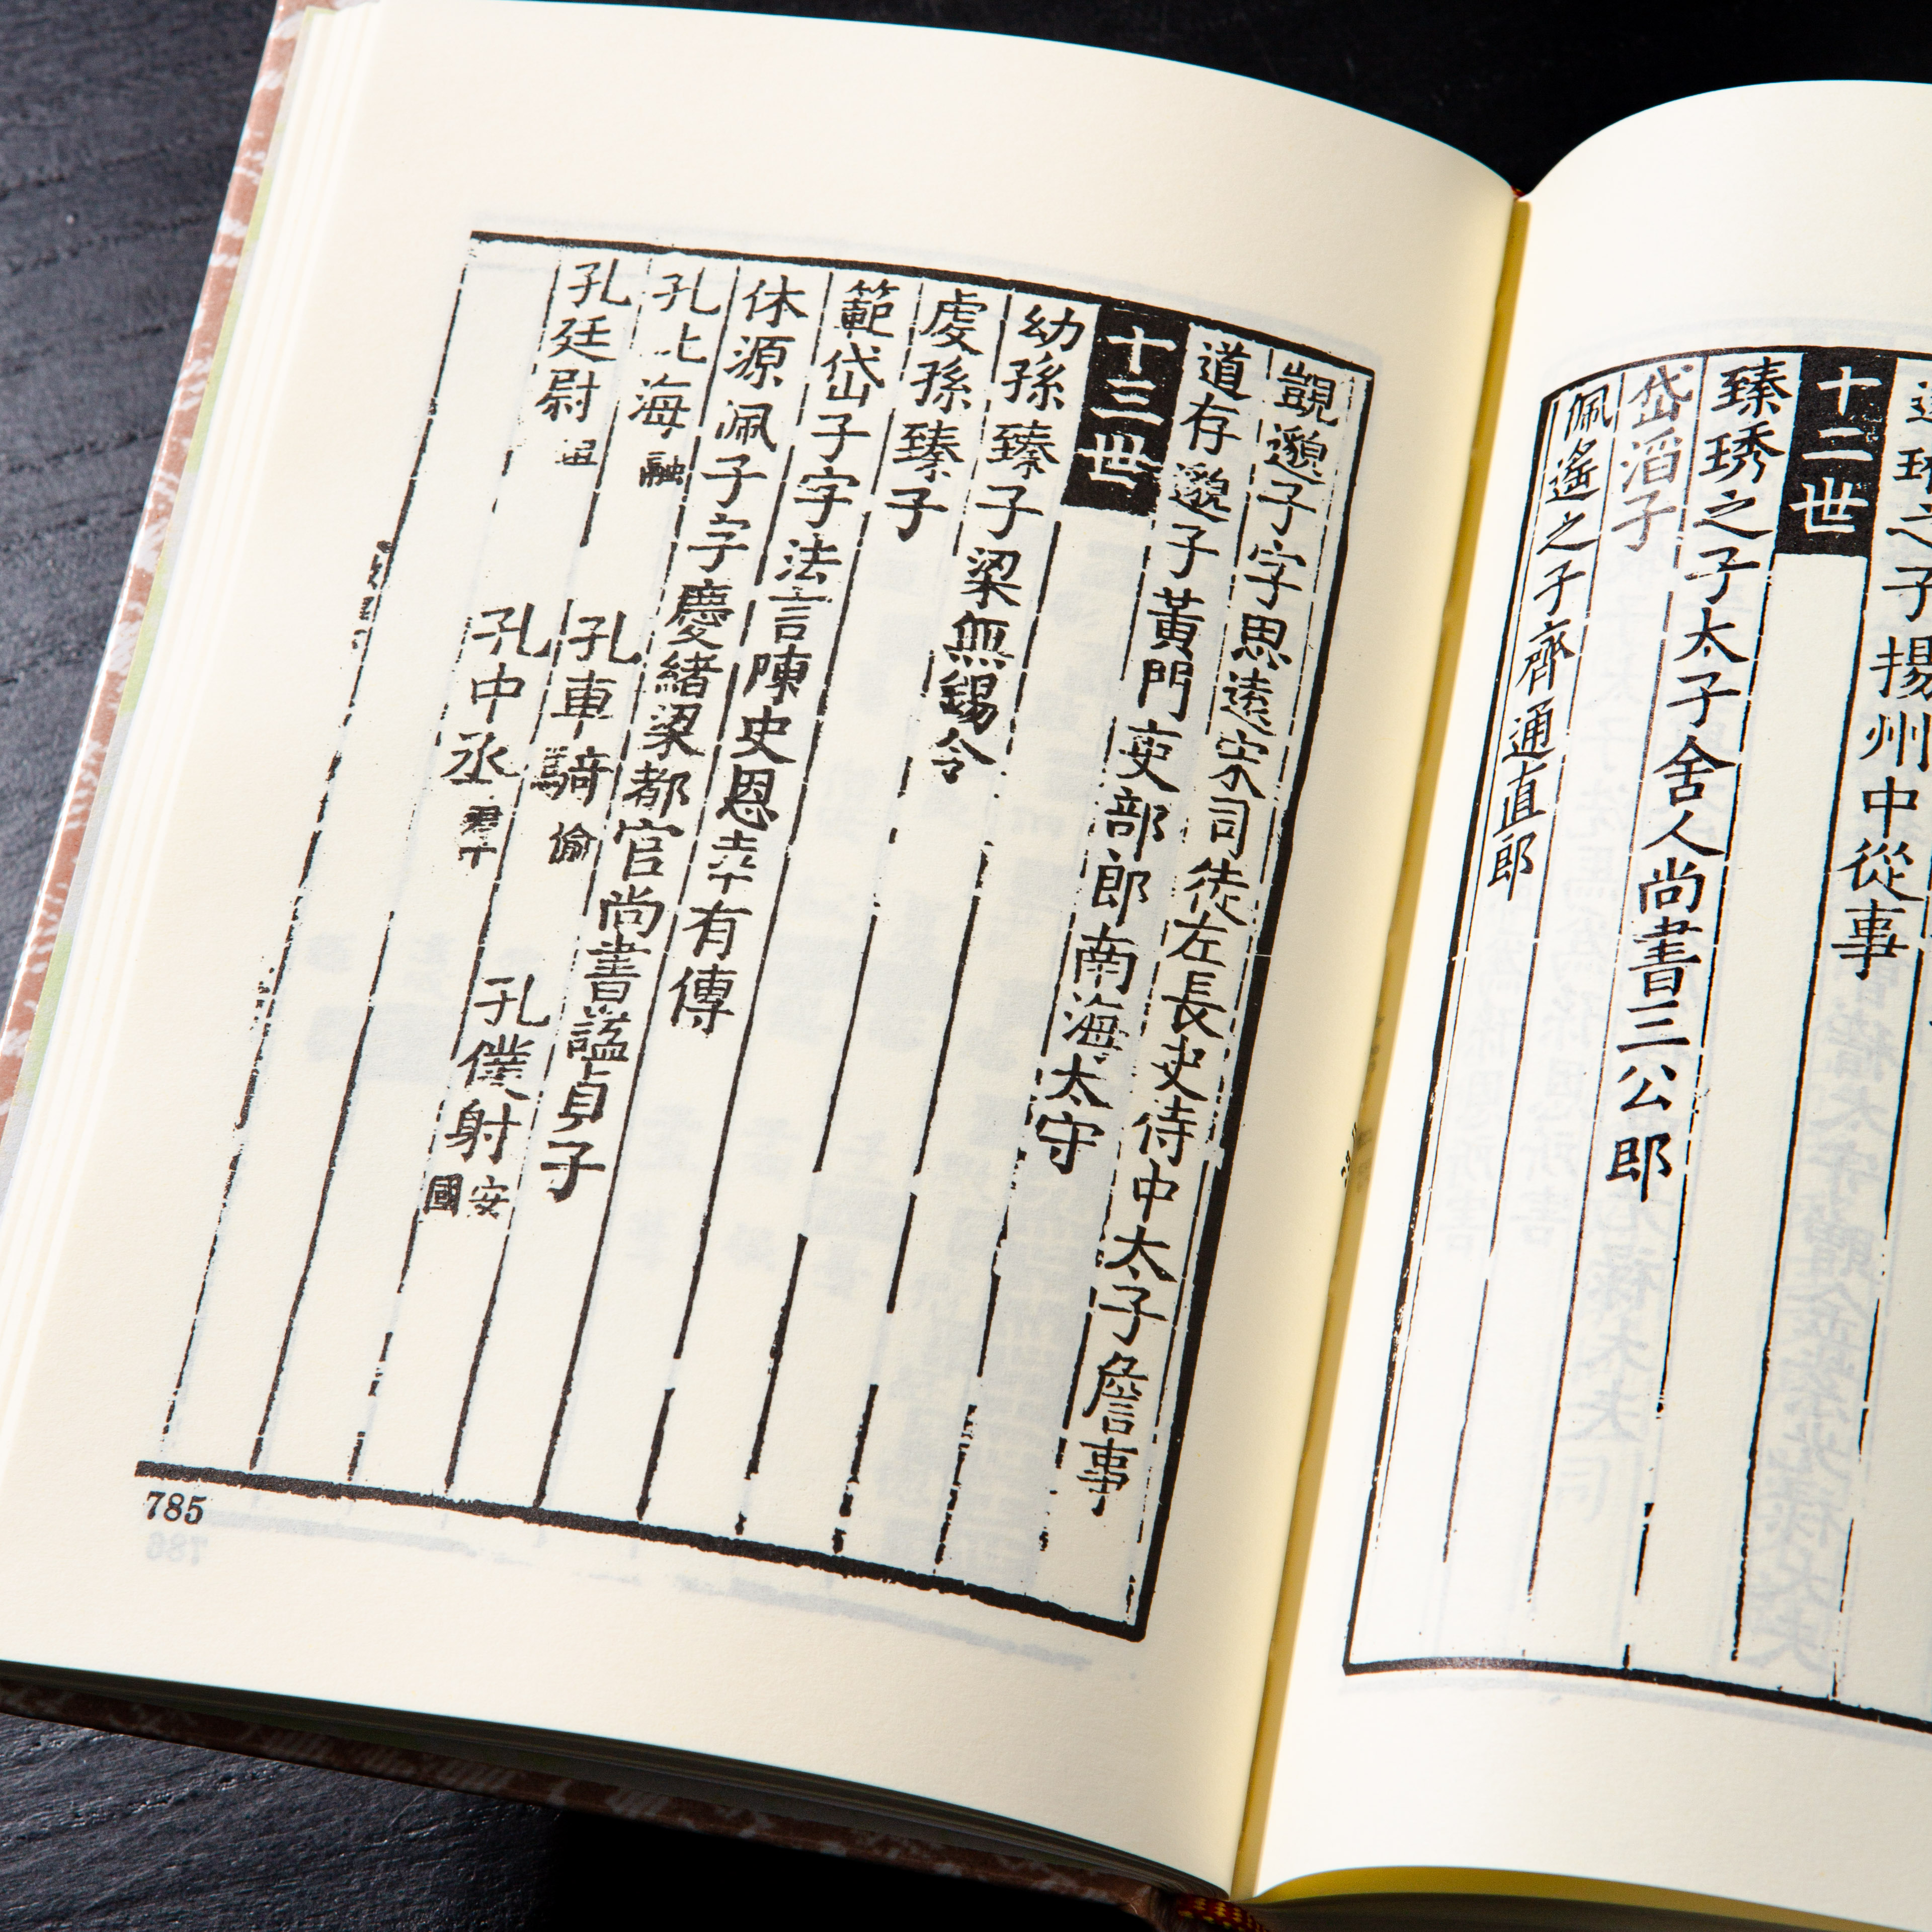 之子揚州中從事
十二世
臻琇之子太子舍人尚書三公郎
岱滔子
佩遙之子齊通直郎
覬邈子字思遠宋司徒左長史侍中太子詹事
道存邈子黃門吏部郎南海太守
十三世
幼孫臻子梁無錫令
虔孫臻子
範岱子字法言陳史恩幸有傳
休源佩子字慶緒梁都官尚書諡貞子
孔北海融 孔車騎愉 孔僕射安國
孔廷尉坦 孔中丞羣
785